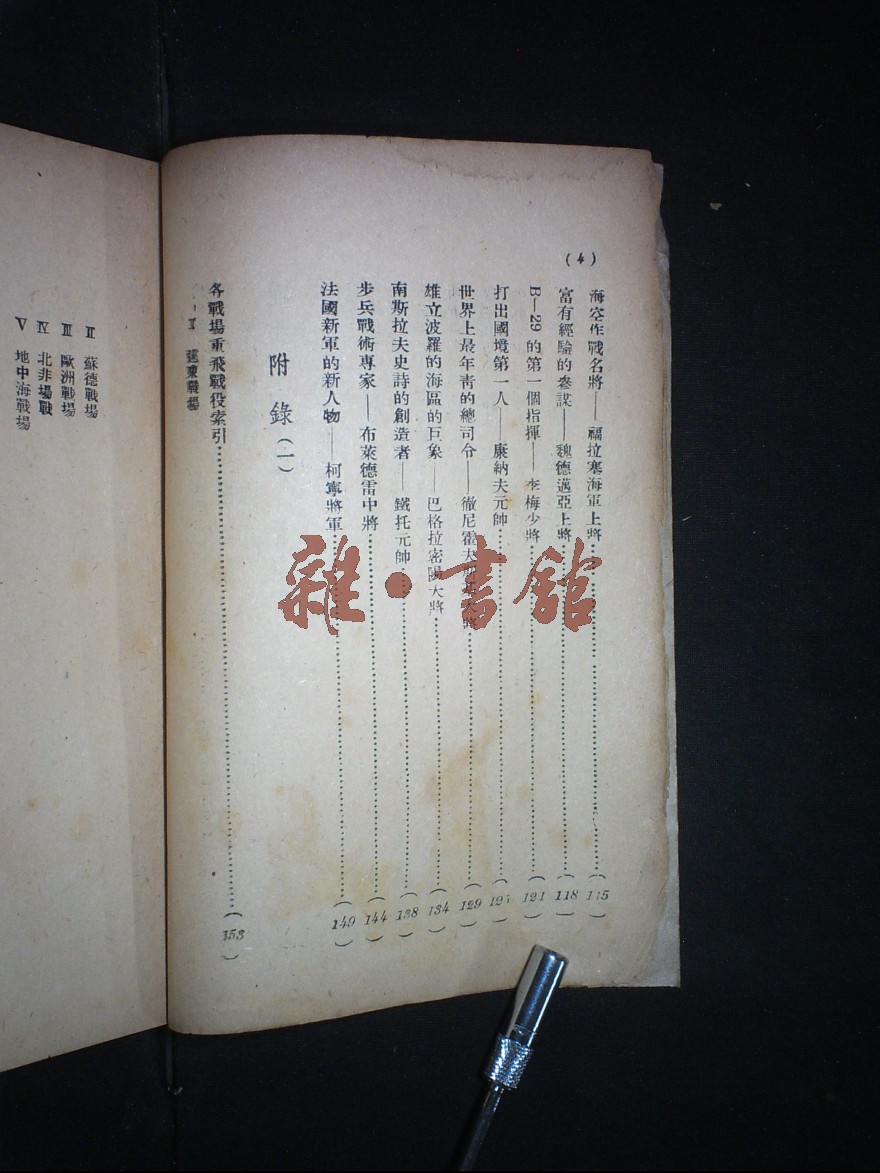 (4)
海空作戰名將——福拉塞海軍上將……(115)
富有經驗的參謀——魏德邁亞上將……(118)
B—29的第一個指揮——李梅少將……(121)
打出國境第一人——康納夫元帥……(127)
世界上最年青的總司令——徹尼霍夫斯基大將……(129)
雄立波羅的海區的巨象——巴格拉密陽大將……(134)
南斯拉夫史詩的創造者——鐵托元帥……(138)
步兵戰術專家——布萊德雷中將……(144)
法國新軍的新人物——柯寧將軍……(149)
附錄(一)
各戰場重飛戰役索引……(153)
I 遠東戰場
II 蘇德戰場
III 歐洲戰場
IV 北非場戰
V 地中海戰場
雜·書館